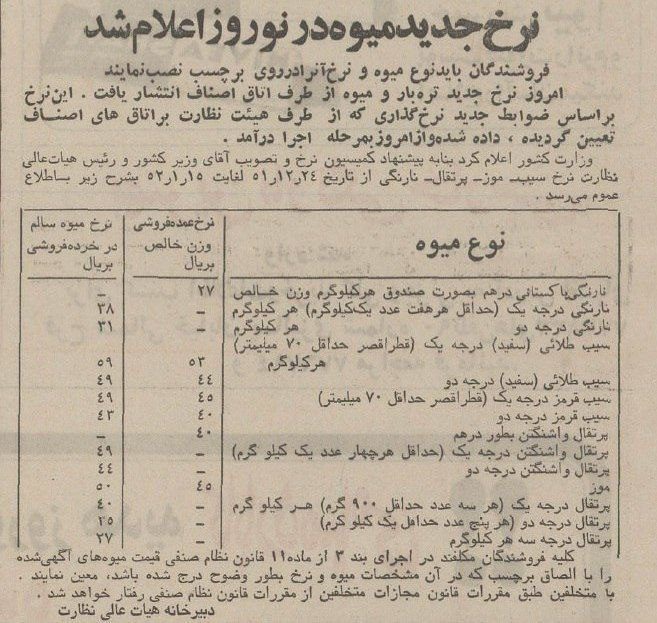 نرخ جدید میوه در نوروز اعلام شد
فروشندگان باید نوع میوه و نرخ آنرا در روی برچسب نصب نمایند
امروز نرخ جدید تره‌بار و میوه از طرف اتاق اصناف انتشار یافت . این نرخ
بر اساس ضوابط جدید نرخ‌گذاری که از طرف هیئت نظارت بر اتاق های اصناف
تعیین گردیده ، داده شده و از امروز بمرحله اجرا درآمد .
وزارت کشور اعلام کرد بنابه پیشنهاد کمیسیون نرخ و تصویب آقای وزیر کشور و رئیس هیات‌عالی
نظارت نرخ سیب- موز- پرتقال- نارنگی از تاریخ ۵۱ر۱۲ر۲۴ لغایت ۵۲ر۱ر۱۵ بشرح زیر باطلاع
عموم می‌رسد .
نوع میوه نرخ عمده‌فروشی وزن خالص بریال نرخ میوه سالم در خرده‌فروشی بریال
نارنگی پاکستانی درهم بصورت صندوق هر کیلوگرم وزن خالص ۲۷ –
نارنگی درجه یک (حداقل هر هفت عدد یک کیلوگرم) هر کیلوگرم – ۳۸
نارنگی درجه دو هر کیلوگرم – ۳۱
سیب طلائی (سفید) درجه یک (قطر اقصر حداقل ۷۰ میلیمتر)
هر کیلوگرم ۵۳ ۵۹
سیب طلائی (سفید) درجه دو ۴۴ ۴۹
سیب قرمز درجه یک (قطر اقصر حداقل ۷۰ میلیمتر) ۴۵ ۴۹
سیب قرمز درجه دو ۴۰ ۴۳
پرتقال واشنگتن بطور درهم ۴۰ –
پرتقال واشنگتن درجه یک (حداقل هر چهار عدد یک کیلو گرم) – ۴۹
پرتقال واشنگتن درجه دو – ۴۴
موز ۴۵ ۵۰
پرتقال درجه یک (هر سه عدد حداقل ۹۰۰ گرم) هر کیلو گرم – ۴۰
پرتقال درجه دو (هر پنج عدد حداقل یک کیلو گرم) – ۳۵
پرتقال درجه سه هر کیلوگرم – ۲۷
کلیه فروشندگان مکلفند در اجرای بند ۳ از ماده ۱۱ قانون نظام صنفی قیمت میوه‌های آگهی‌شده
را با الصاق برچسب که در آن مشخصات میوه و نرخ بطور وضوح درج شده باشد، معین نمایند .
با متخلفین طبق مقررات قانون مجازات متخلفین از مقررات قانون نظام صنفی رفتار خواهد شد .
دبیرخانه هیات عالی نظارت